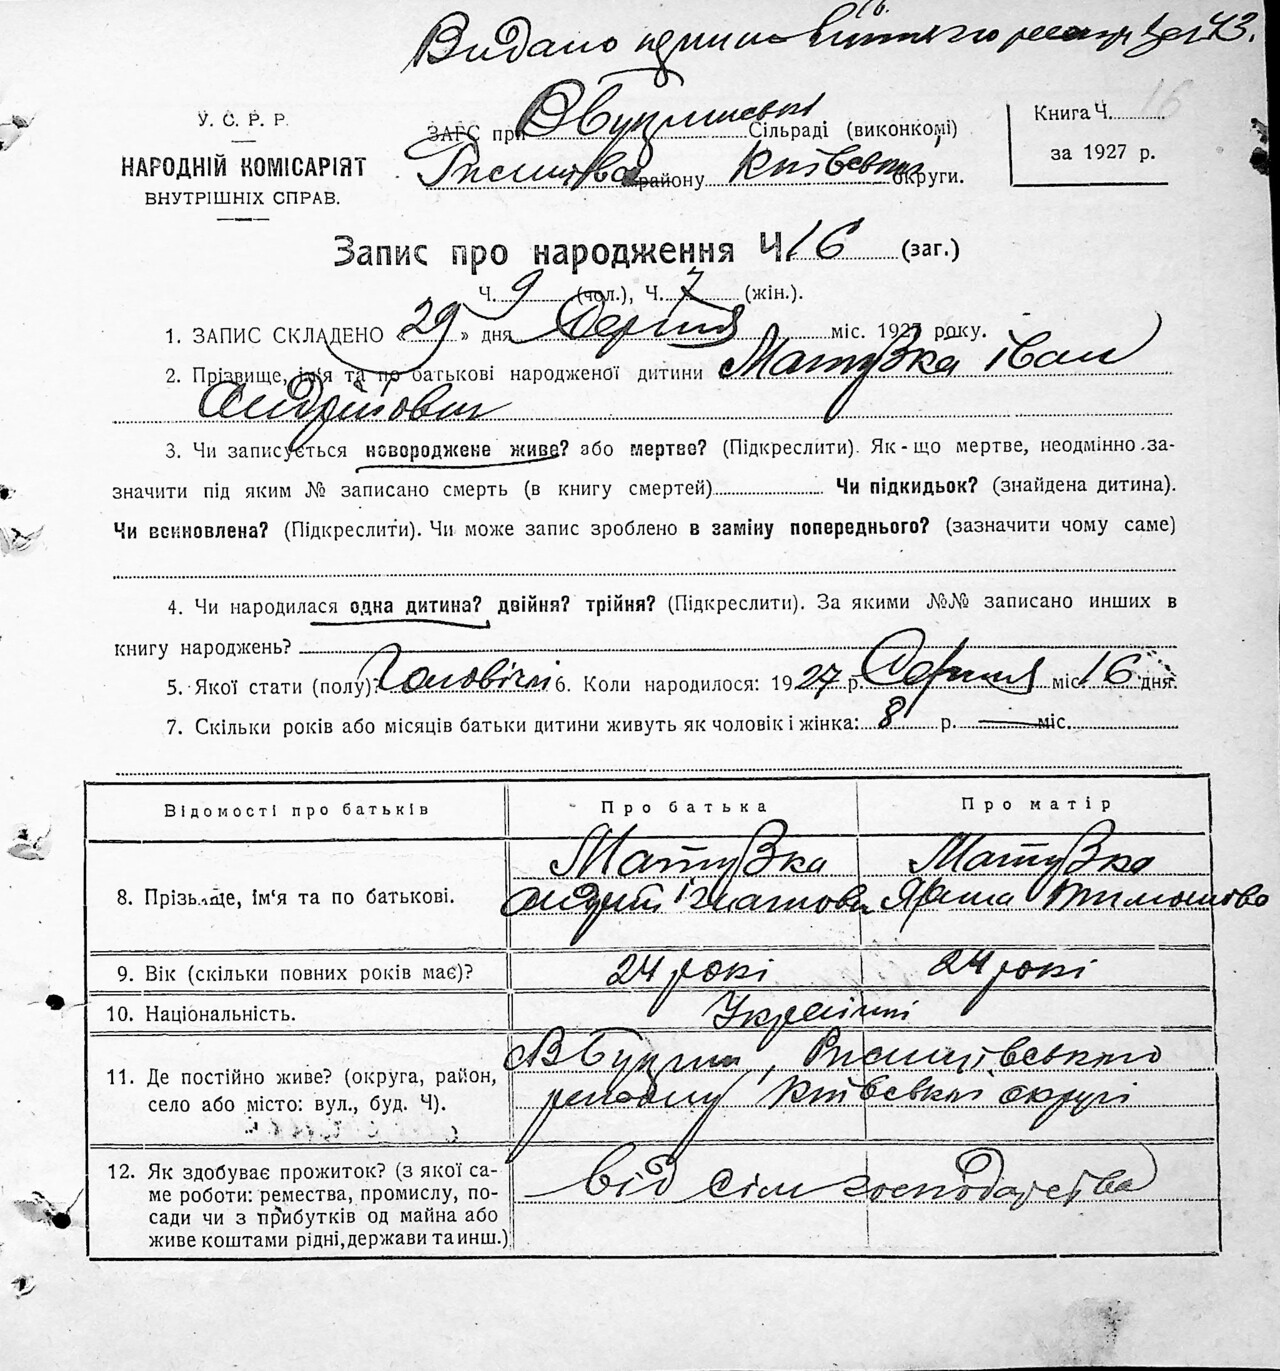 Видано
У. С. Р. Р.
НАРОДНІЙ КОМІСАРІЯТ
ВНУТРІШНІХ СПРАВ.
ЗАГС при Сільраді (виконкомі)
району Київської округи.
Книга Ч. 16
за 1927 р.
Запис про народження Ч. 16 (заг.)
Ч. 9 (чол.), Ч. 7 (жін.).
1. ЗАПИС СКЛАДЕНО « 29 » дня Серпня міс. 1927 року.
2. Прізвище, ім'я та по батькові народженої дитини Матузка Іван
Андрійович
3. Чи записується новороджене живе? або мертве? (Підкреслити). Як-що мертве, неодмінно за-
значити під яким № записано смерть (в книгу смертей) Чи підкидьок? (знайдена дитина).
Чи всиновлена? (Підкреслити). Чи може запис зроблено в заміну попереднього? (зазначити чому саме)
4. Чи народилася одна дитина? двійня? трійня? (Підкреслити). За якими №№ записано инших в
книгу народжень?
5. Якої стати (полу)? Чоловічоі 6. Коли народилося: 1927 р. Серпня міс. 16 дня.
7. Скільки років або місяців батьки дитини живуть як чоловік і жінка: 8 р. — міс.
Відомості про батьків Про батька Про матір
8. Прізвище, ім'я та по батькові. Матузка Матузка
Андрій Ігнатович
9. Вік (скільки повних років має)? 24 рокі 24 рокі
10. Національність. Українці
11. Де постійно живе? (округа, район,
село або місто: вул., буд. Ч).
району Київської округі
12. Як здобуває прожиток? (з якої са-
ме роботи: ремества, промислу, по-
сади чи з прибутків од майна або
живе коштами рідні, держави та инш.)
від сільгосподарства